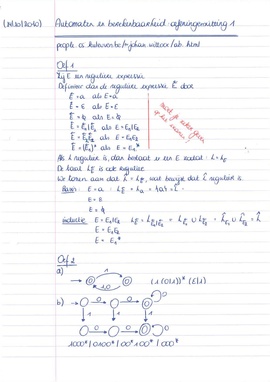 (14/10/2010) Automaten en berekenbaarheid: oefeningenzitting 1
people.cs.kuleuven.be/~johan.wittocx/ab.html
Oef 1
Zij E een reguliere expressie
Definieer dan de reguliere expressie Ê door
Ê = a als E = a
Ê = ε als E = ε
Ê = ϕ als E = ϕ
Ê = Ê₁|Ê₂ als E = E₁|E₂
Ê = Ê₂Ê₁ als E = E₁E₂
Ê = (Ê₁)* als E = E₁*
Als L regulier is, dan bestaat er een E zodat: L = L_E
De taal L_Ê is ook regulier
We tonen aan dat L̂ = L_Ê, wat bewijst dat L̂ regulier is
Basis: E = a : L_Ê = L_a = {a} = L̂
E = ε
E = ϕ
Inductie: E = E₁|E₂ L_Ê = L_Ê₁|Ê₂ = L_Ê₁ ∪ L_Ê₂ = L̂₁ ∪ L̂₂ = L̂
E = E₁E₂
E = E₁*
Oef 2
a) 1 0 (1(01))* (ε|1)
b) 0 0 0
1 1 1
0 0
1000* | 0100* | 00*100* | 000*